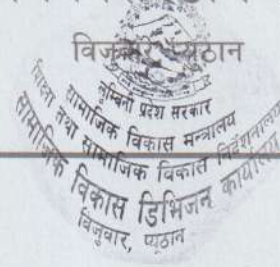 विजुवार, प्यूठान
लुम्बिनी प्रदेश सरकार
सामाजिक विकास मन्त्रालय
शिक्षा तथा सामाजिक विकास निर्देशनालय
सामाजिक विकास डिभिजन कार्यालय
विजुवार, प्यूठान